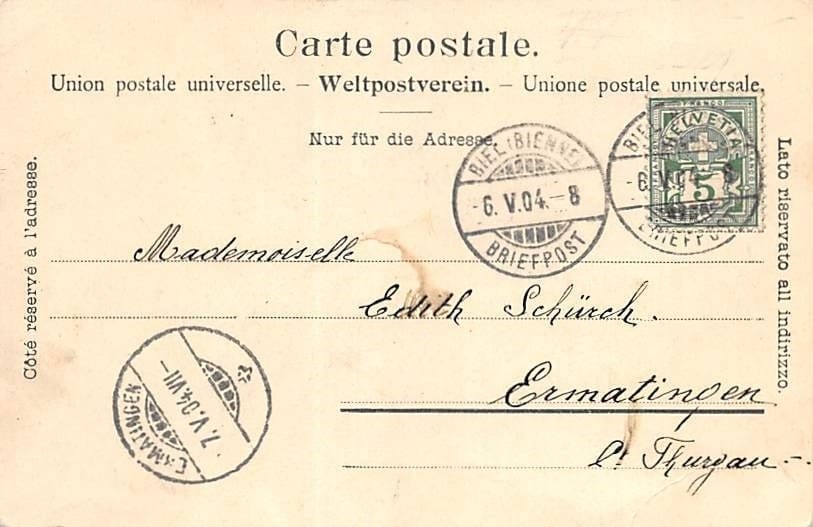 Carte postale.
Union postale universelle. – Weltpostverein. – Unione postale universale.
Nur für die Adresse.
Côté réservé à l'adresse.
Lato riservato all indirizzo.
FRANCO
HELVETIA
5
BIEL (BIENNE)
6. V. 04. – 8
BRIEFPOST
BIEL (BIENNE)
6. V. 04. – 8
BRIEFPOST
Mademoiselle
Edith Schürch.
Ermatingen
Ct Thurgau –
ERMATINGEN
7. V. 04. VII –